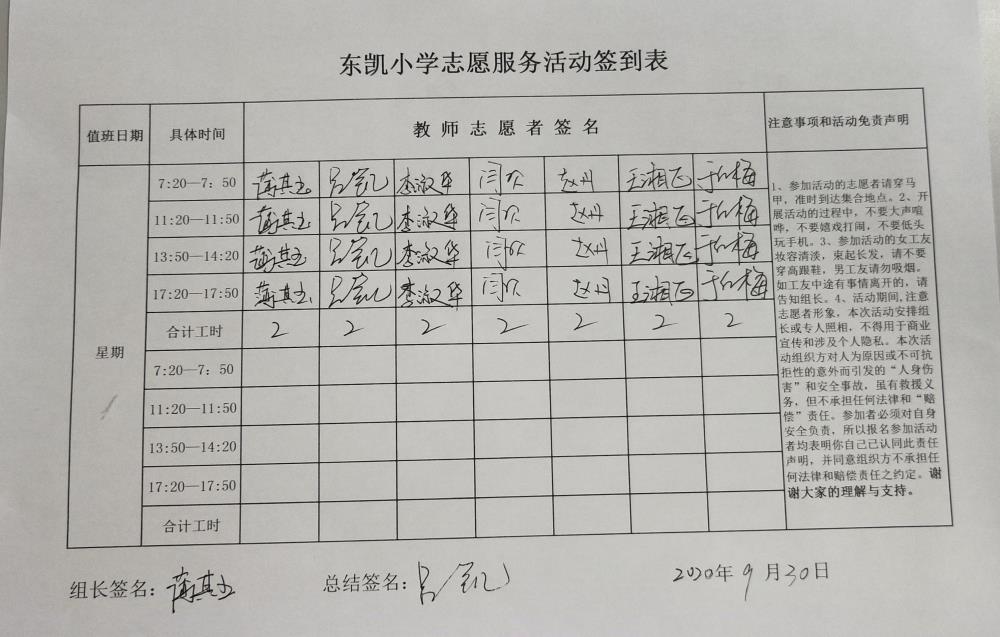 东凯小学志愿服务活动签到表
值班日期 具体时间 教师志愿者签名 注意事项和活动免责声明
7:20—7：50 蒋其玉 李淑华 闫欣 赵丹 王湘飞 于红梅
11:20—11:50 蒋其玉 李淑华 闫欣 赵丹 王湘飞 于红梅
13:50—14:20 蒋其玉 李淑华 闫欣 赵丹 王湘飞 于红梅
17:20—17:50 蒋其玉 李淑华 闫欣 赵丹 王湘飞 于红梅
合计工时 2 2 2 2 2 2 2
星期
7:20—7：50
11:20—11:50
13:50—14:20
17:20—17:50
合计工时
1、参加活动的志愿者请穿马
甲，准时到达集合地点。2、开
展活动的过程中，不要大声喧
哗，不要嬉戏打闹，不要低头
玩手机。3、参加活动的女工友
妆容清淡，束起长发，请不要
穿高跟鞋，男工友请勿吸烟。
如工友中途有事情离开的，请
告知组长。4、活动期间,注意
志愿者形象，本次活动安排组
长或专人照相，不得用于商业
宣传和涉及个人隐私。本次活
动组织方对人为原因或不可抗
拒性的意外而引发的“人身伤
害”和安全事故，虽有救援义
务，但不承担任何法律和“赔
偿”责任。参加者必须对自身
安全负责，所以报名参加活动
者均表明你自己已认同此责任
声明，并同意组织方不承担任
何法律和赔偿责任之约定。谢
谢大家的理解与支持。
组长签名：蒋其玉 总结签名： 2020年9月30日